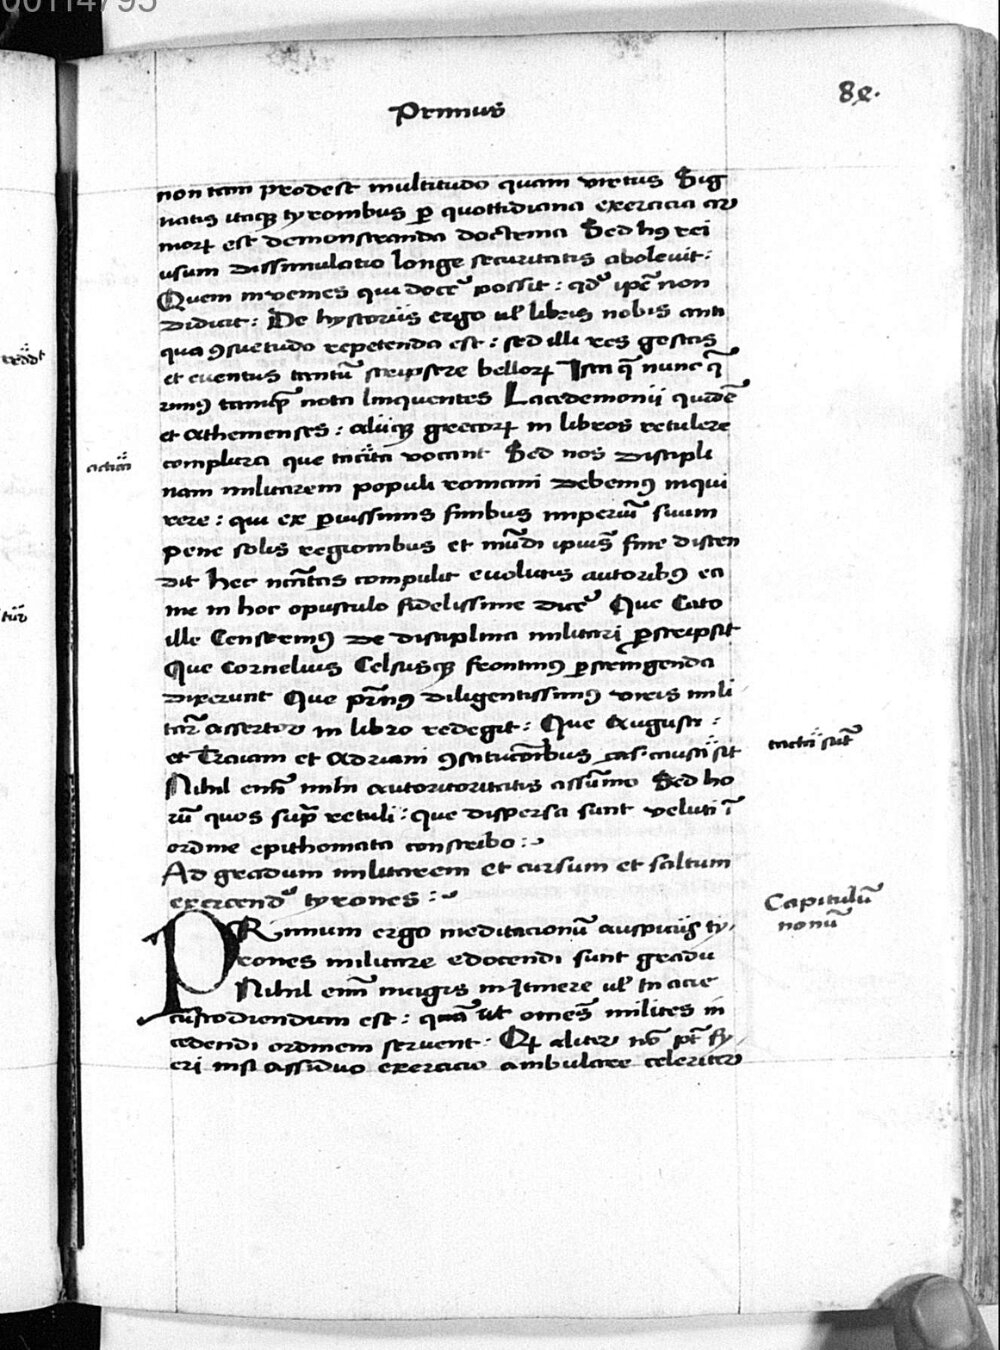 00114795
Primus
non tam prodest multitudo quam virtus Sig
natis itaqꝫ tyronibus ꝑ quottidiana exercicia ar
moꝝ est demonstranda doctrina Sed hꝰ rei
usum dissimulatio longe securitatis abolevit:
Quem invenies qui docẽ possit: qď ip̃e non
didicit: De hystoriis ergo ul̃ libris nobis anti
qua ꝯsuetudo repetenda est: sed illi res gestas
et eventus tantũ scripsere belloꝝ Ista q̃ nunc q̃
rimꝰ tamq̃ nota linquentes Lacedemonii quidẽ
et Atheniensес: aliiqꝫ grecoꝝ in libros retulere
complura que tacita vocant Sed nos discipli
nam militarem populi romani debemꝰ inqui
rere: qui ex ꝑvissimis finibus imperiũ suum
pene solis regionibus et mũdi ipius fine disten
dit Hec nc̃itas compulit evolutis autoribꝰ ea
me in hoc opusculo fidelissime dicẽ Que Cato
ille Censorinꝰ De disciplina militari ꝑscripsit
Que Cornelius Celsusqꝫ frontinꝰ ꝑstringenda
dixerunt Que pr̃nꝰ diligentissimꝰ viris mili
tar̃ assertor in libro redegit: Que Augusti:
et Traiani et Adriani ꝯstitucõibus
Nihil enim̃ mihi autoritoritatis assũmo Sed ho
rũ quos sup̃ retuli: que dispersa sunt veluti ĩ
ordine epithomata conscribo:
Ad gradum militarem et cursum et saltum
exercend̃ tyrones:
PRimum ergo meditacionũ auspiciis ty
rones militare edocendi sunt gradu
Nihil enim̃ magis in itinere ul̃ in acie
custodiendum est: quã ut omẽs milites in
cedendi ordinem servent. Qꝝ aliter nõ pt̃ fy
eri nisi assiduo exercicio ambulare celeriter
Capitulũ
nonũ